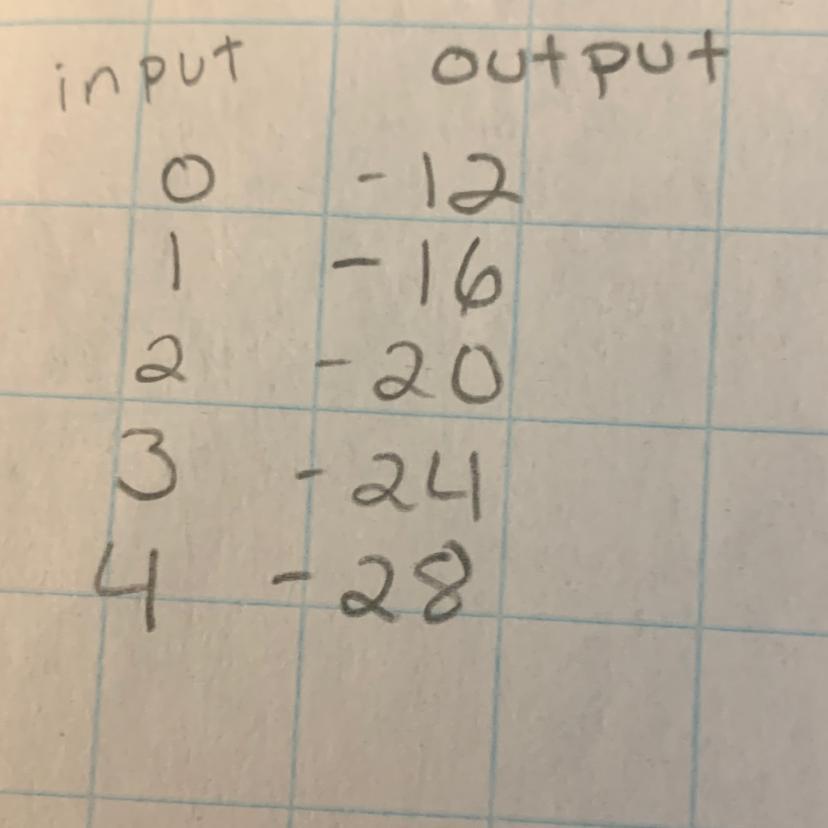 input output
0 -12
1 -16
2 -20
3 -24
4 -28